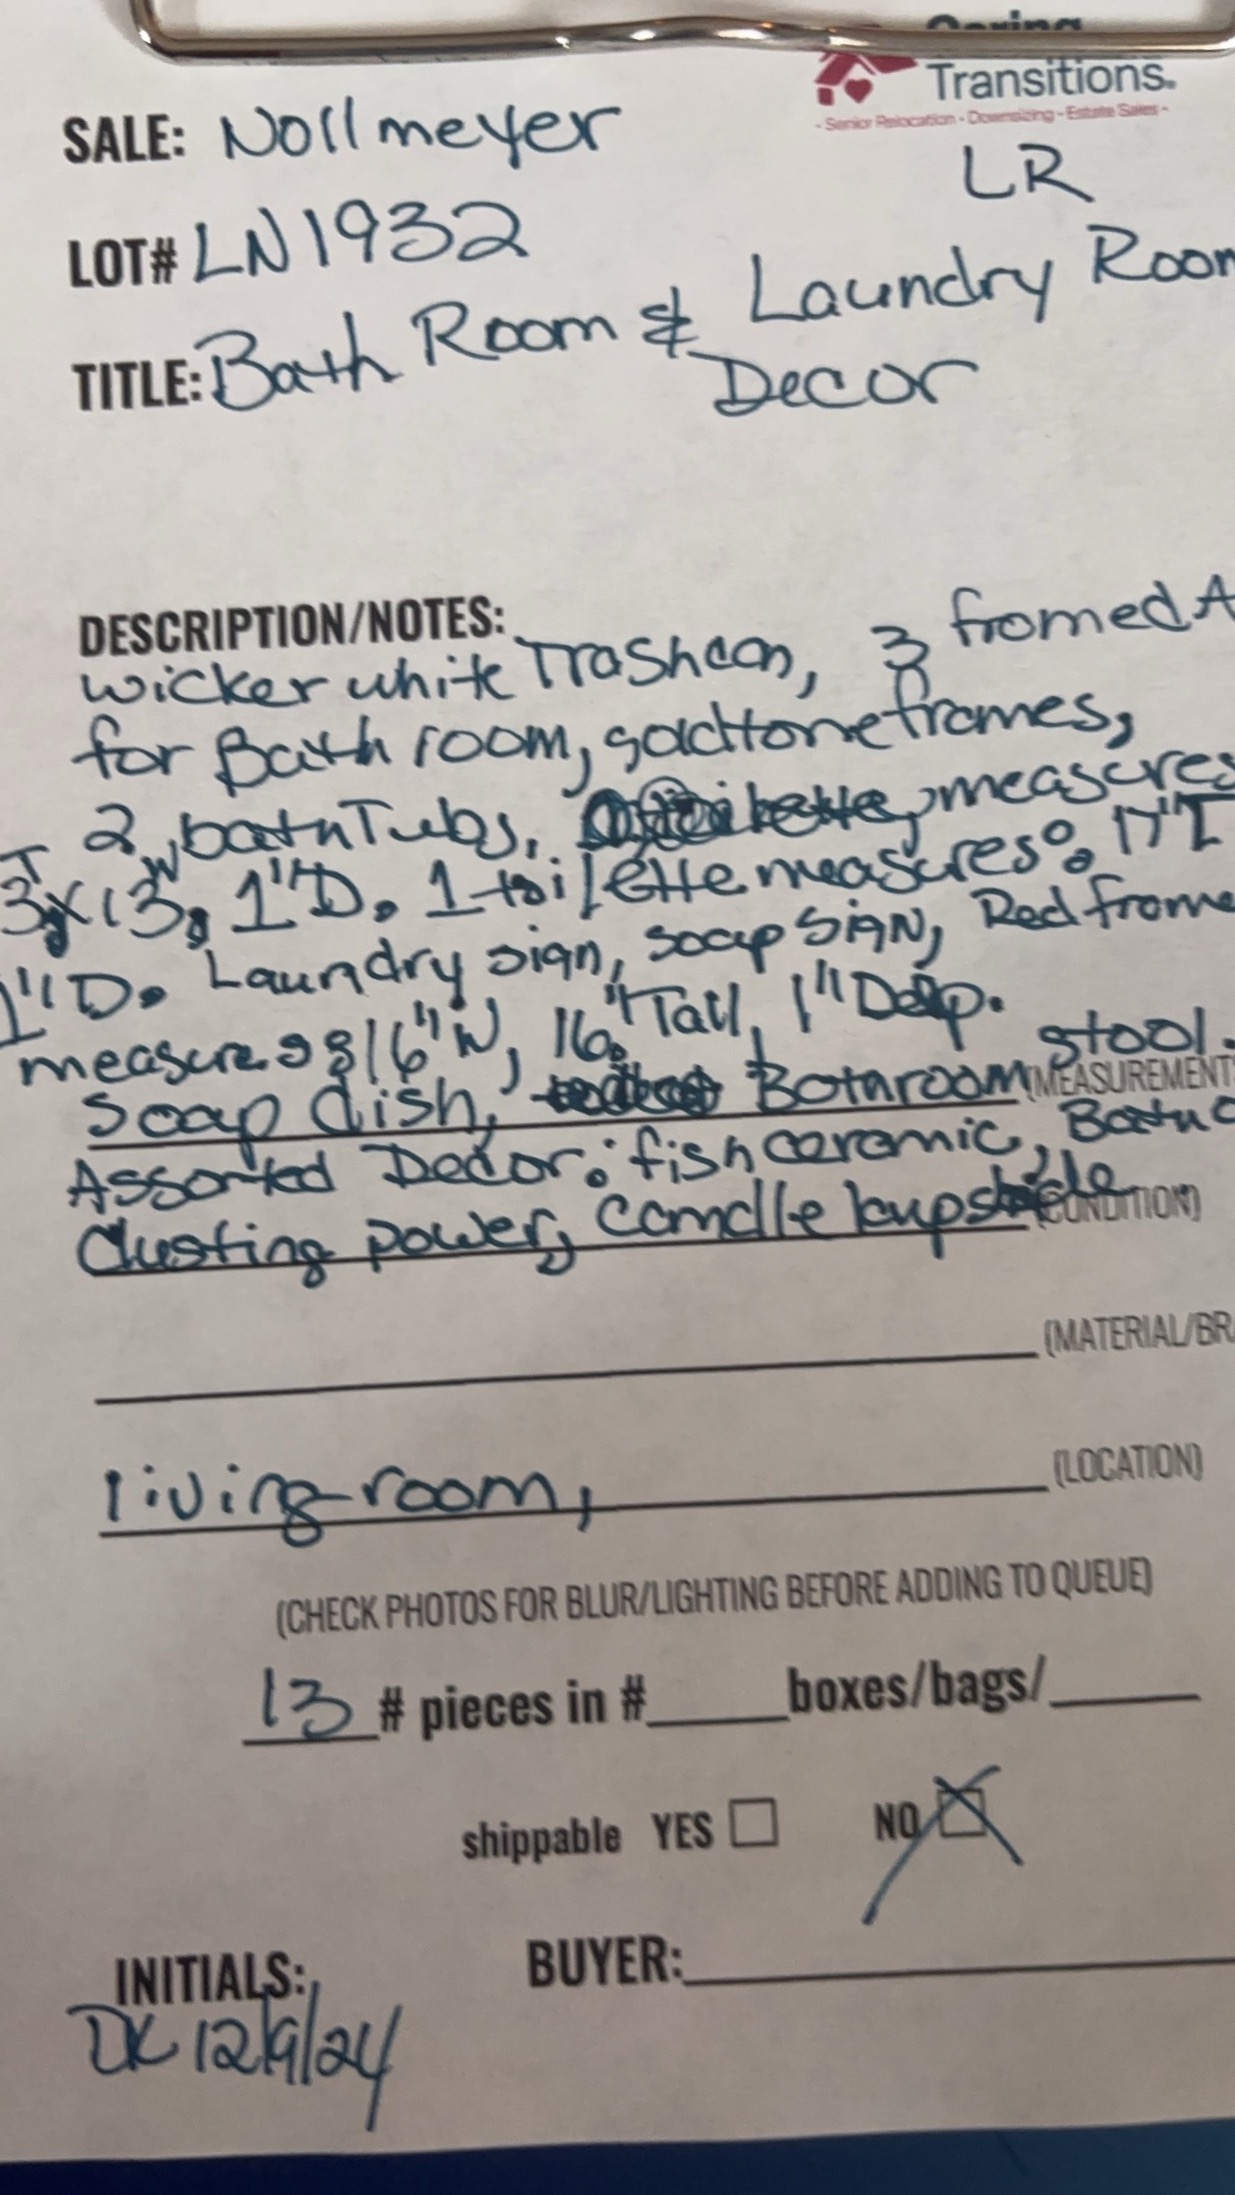 Caring
Transitions.
- Senior Relocation - Downsizing - Estate Sales -
SALE: Nollmeyer
LR
LOT# LN1932
TITLE: Bath Room & Laundry Room
Decor
DESCRIPTION/NOTES:
wicker white Trashcan, 3 framed A
for Bath room, goldtone frames,
2 bathTubs, measures
T W
3x13, 1"D. 1 toilette measures: 17"T
1"D. Laundry sign, soap SIGN, Red frame
measures 16"W, 16"Tall, 1"Deep.
Soap dish, Bathroom stool.
(MEASUREMENTS
Assorted Decor: fish ceramic, Bath
Dusting power, Candle
(CONDITION)
(MATERIAL/BRA
living room,
(LOCATION)
(CHECK PHOTOS FOR BLUR/LIGHTING BEFORE ADDING TO QUEUE)
13 # pieces in #____boxes/bags/____
shippable YES NO
INITIALS: BUYER:
DK 12/9/24